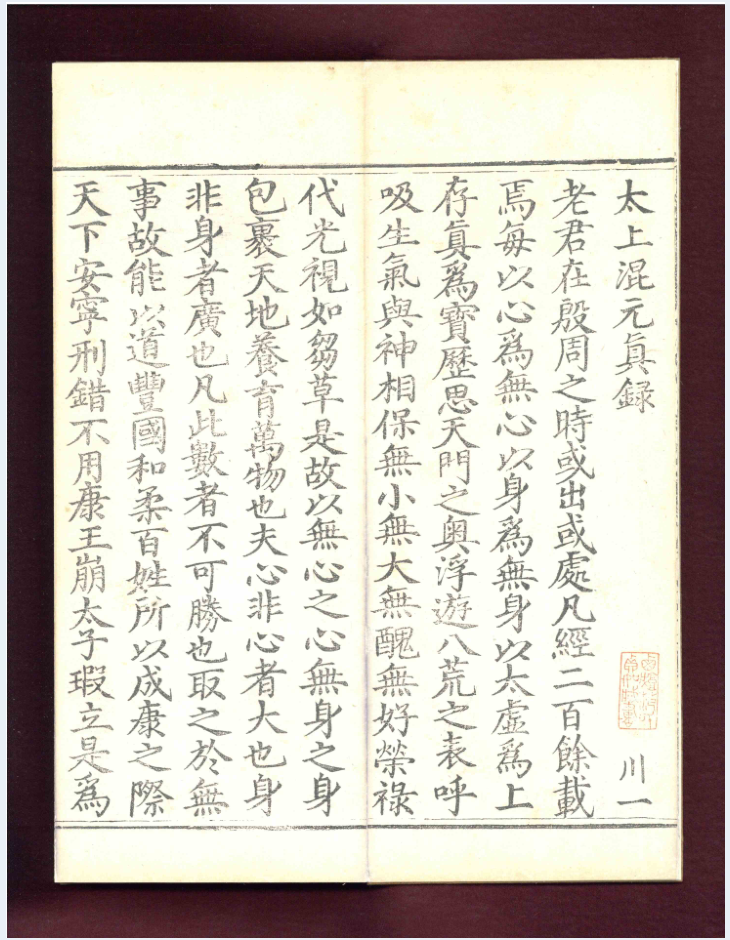 太上混元眞録
川一
老君在殷周之時或出或處凡經二百餘載
焉每以心爲無心以身爲無身以太虛爲上
存眞爲寶歷思天門之奥浮遊八荒之表呼
吸生氣與神相保無小無大無醜無好榮祿
代光視如芻草是故以無心之心無身之身
包裹天地養育萬物也夫心非心者大也身
非身者廣也凡此數者不可勝也取之於無
事故能以道豐國和柔百姓所以成康之際
天下安寧刑錯不用康王崩太子瑕立是爲